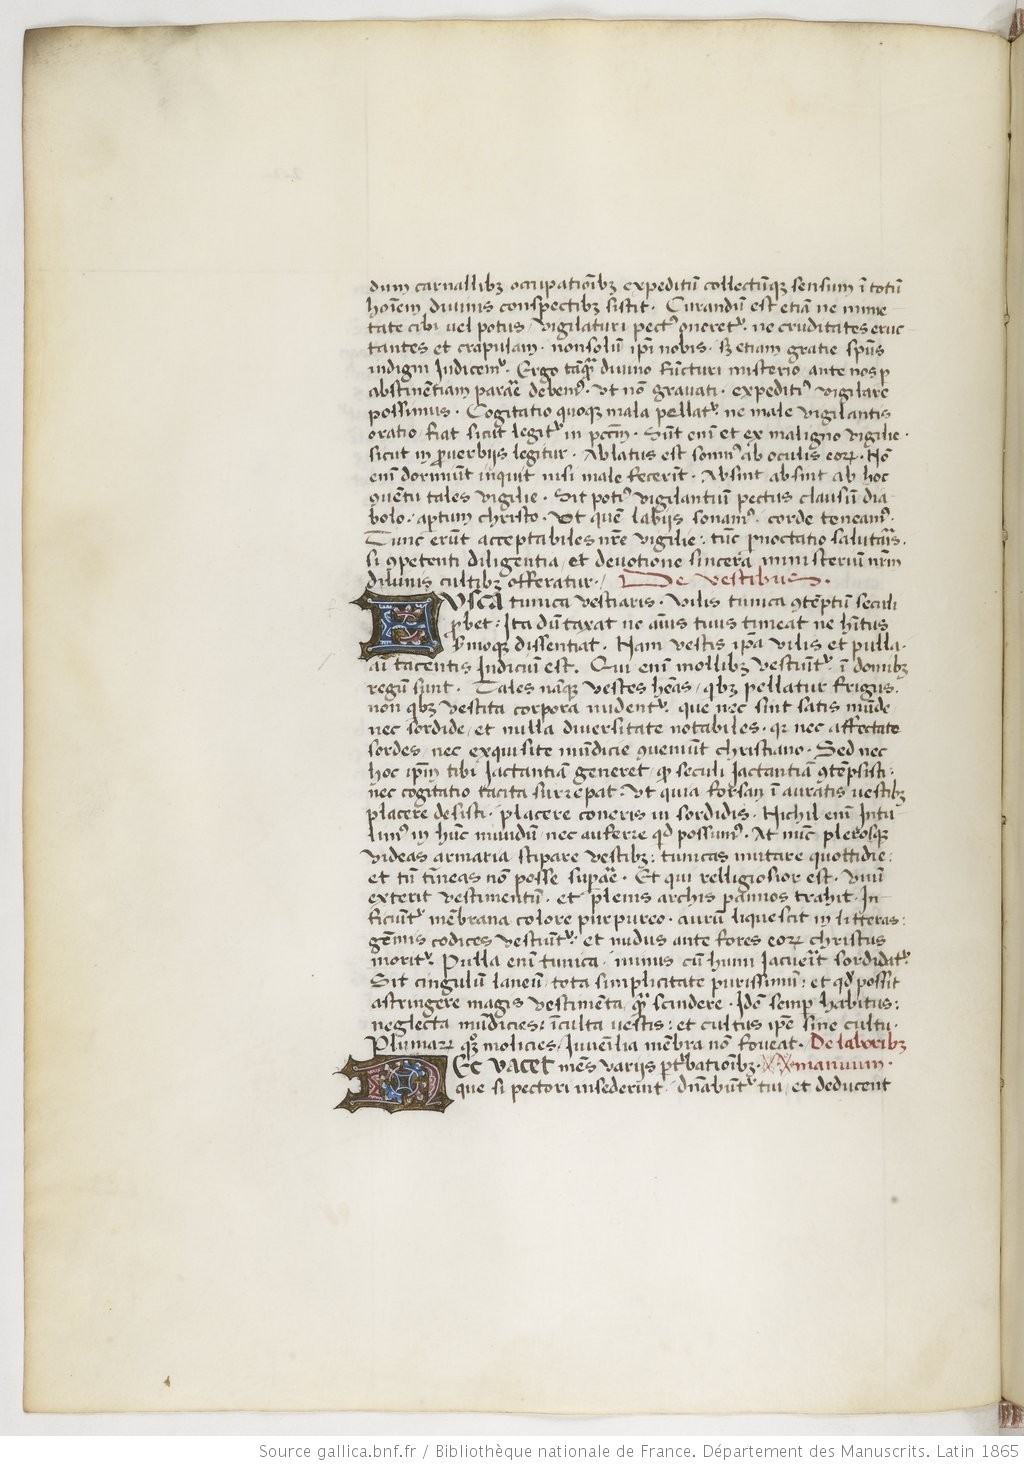 dum carnalibꝫ occupatiōibꝫ expeditū collectūqꝫ sensum ī totū
hoīem diuinis conspectibꝫ sistit · Curandū est etiā ne nimie
tate cibi uel potus / vigilaturi pectꝰ oneretᷣ · ne cruditates eruc
tantes et crapulam · nonsolū ip̄i nobis · sꝫ etiam gratie sp̄us
indigni Judicemᷣ · Ergo tāqᷓ diuino fūcturi misterio ante nos ꝑ
abstinentiam parāre debemꝰ · vt nō grauati · expeditiꝰ vigilare
possimus · Cogitatio quoqꝫ mala pellatᷣ · ne male vigilantis
oratio fiat sicut legitᷣ in pccm̄ · Sūt eni et ex maligno vigilie ·
sicut in ꝓuerbijs legitur · Ablatus est somnꝰ ab oculis eoꝝ · Nō
eni dormiūt inquit nisi male fecerīt · Absint absint ab hoc
ꝯuētu tales vigilie · Sit potiꝰ vigilantiū pectus clausū dia
bolo · aptum christo · Vt quē labijs sonamꝰ · corde teneamꝰ ·
Tunc erūt acceptabiles nr̄e vigilie : tūc ꝑnoctatio salutāris ·
si ꝯpetenti diligentia / et deuotione sincera ministeriū nr̄m
diuinis cultibꝫ offeratur · / De vestibus ·
Fusca tunica vestiaris · Vilis tunica ꝯtēptū seculi
ꝓbet : Ita dūtaxat ne aīus tuus timeat ne hītus
sᵉrmoqꝫ dissentiat · Nam vestis ip̄a vilis et pulla ·
aī tacentis Judiciū est · Qui eni mollibꝫ vestiūtᷣ · ī domibꝫ
regū sunt · Tales nāqꝫ vestes hēas / qbꝫ pellatur frigus ·
non qbꝫ vestita corpora nudentᷣ · que nec sint satis mūde
nec sordide / et nulla diuersitate notabiles · qꝛ nec affectate
sordes / nec exquisite mūdicie ꝯueniūt christiano · Sed nec
hoc ip̄m tibi Jactantiā generet / qꝫ seculi Jactantiā ꝯtēpsisti ·
nec cogitatio tacita surrepat · Vt quia forsan ī auratis uestibꝫ
placere desisti · placere coneris in sordidis · Nichil eni Intu
limꝰ in hūc mundū nec auferre qd possumꝰ · At nūc plerosqꝫ
videas armaria stipare vestibꝫ : tunicas mutare quottidie :
et tn̄ tineas nō posse supāre · Et qui relligiosior est · vnū
exterit vestimentū · et plenis archis pannos trahit · In
ficiūtᷣ mēbrana colore purpureo · aurū liquescit in litteras :
gēmis codices vestiūtᷣ · et nudus ante fores eoꝝ christus
moritᷣ · Pulla eni tunica · minus cū humi Jacuerīt sordidatᷣ ·
Sit cingulū laneū / tota simplicitate purissimū : et qd possit
astringere magis vestimēta / qᷓ scindere · Idē semꝑ habitus :
neglecta mūdicies : īculta uestis : et cultus ip̄e sine cultu ·
Plumaꝝ qꝫ molicies / Iuuenīlia mēbra nō foueat · De laboribꝫ
Nec vacet mēs varijs ꝑturbatiōibꝫ · manuum ·
que si pectori insederint · dn̄abūtᷣ tui / et deducent
Source gallica.bnf.fr / Bibliothèque nationale de France. Département des Manuscrits. Latin 1865